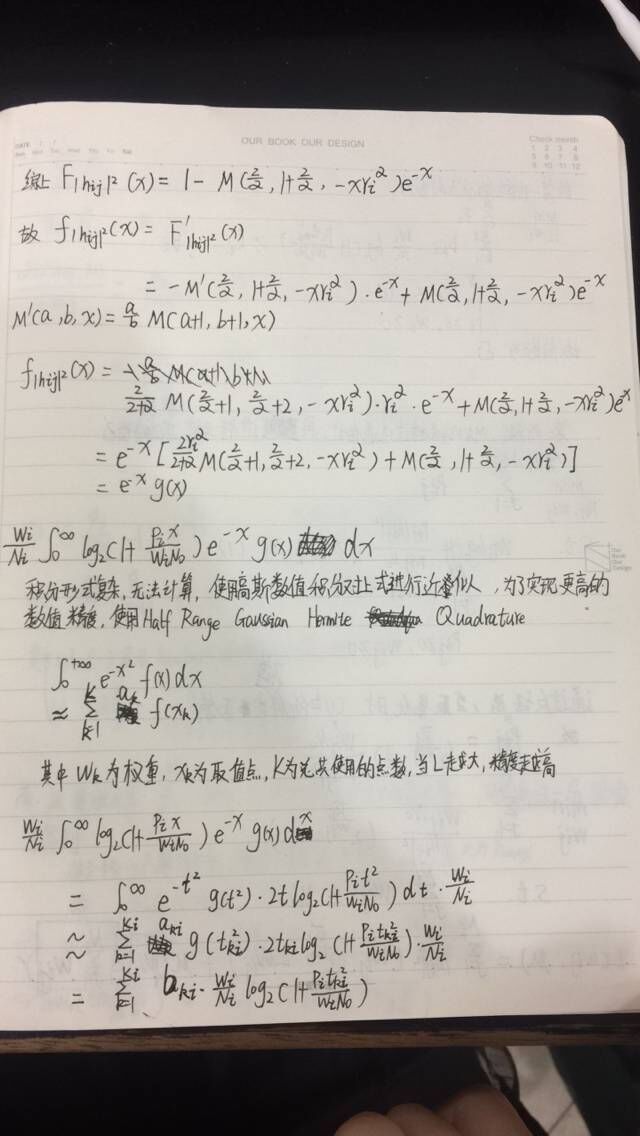 DATE
OUR BOOK OUR DESIGN
Check month
1 2 3 4
5 6 7 8
9 10 11 12
综上 F|hij|²(x) = 1 - M(2/α, 1+2/α, -xriᵅ)e^-x
故 f|hij|²(x) = F'|hij|²(x)
= -M'(2/α, 1+2/α, -xriᵅ)·e^-x + M(2/α, 1+2/α, -xriᵅ)e^-x
M'(a, b, x) = a/b M(a+1, b+1, x)
f|hij|²(x) =
2/(2+α) M(2/α+1, 2/α+2, -xriᵅ)·riᵅ·e^-x + M(2/α, 1+2/α, -xriᵅ)e^x
= e^-x [2riᵅ/(2+α) M(2/α+1, 2/α+2, -xriᵅ) + M(2/α, 1+2/α, -xriᵅ)]
= e^-x g(x)
Wi/Ni ∫₀^∞ log₂(1+ Pix/WiN₀) e^-x g(x) dx
积分形式复杂,无法计算,使用高斯数值积分公式进行近似,为了实现更高的
数值精度,使用Half Range Gaussian Hermite Quadrature
∫₀^+∞ e^-x² f(x)dx
≈ Σ_{k=1}^{K} ak f(xk)
其中Wk为权重,xk为取值点,K为总共使用的点数,当L越大,精度越高
Wi/Ni ∫₀^∞ log₂(1+ Pix/WiN₀) e^-x g(x)dx
= ∫₀^∞ e^-t² g(t²)·2t log₂(1+ Pit²/WiN₀) dt · Wi/Ni
≈ Σ_{k=1}^{Ki} aki g(tki²)·2tki log₂(1+ Pitki²/WiN₀)·Wi/Ni
= Σ_{k=1}^{Ki} bki · Wi/Ni log₂(1+ Pitki²/WiN₀)